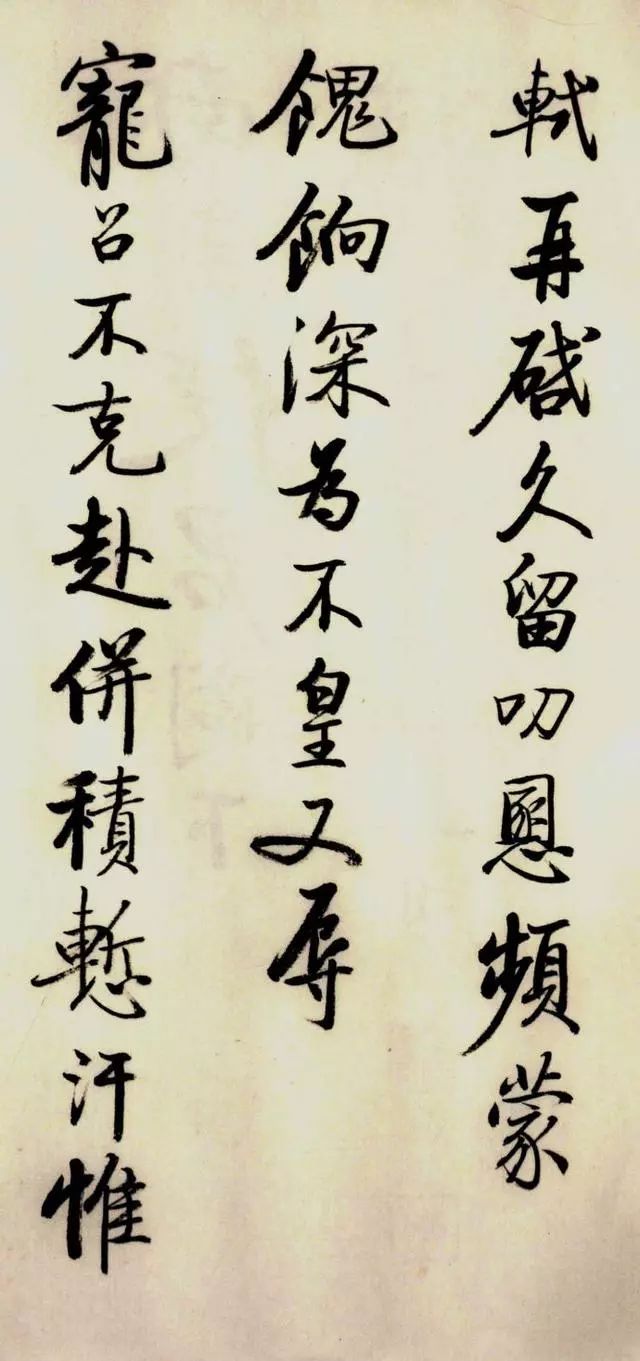 軾再啓久留叨慁頻蒙
餽餉深為不皇又辱
寵召不克赴併積慙汗惟